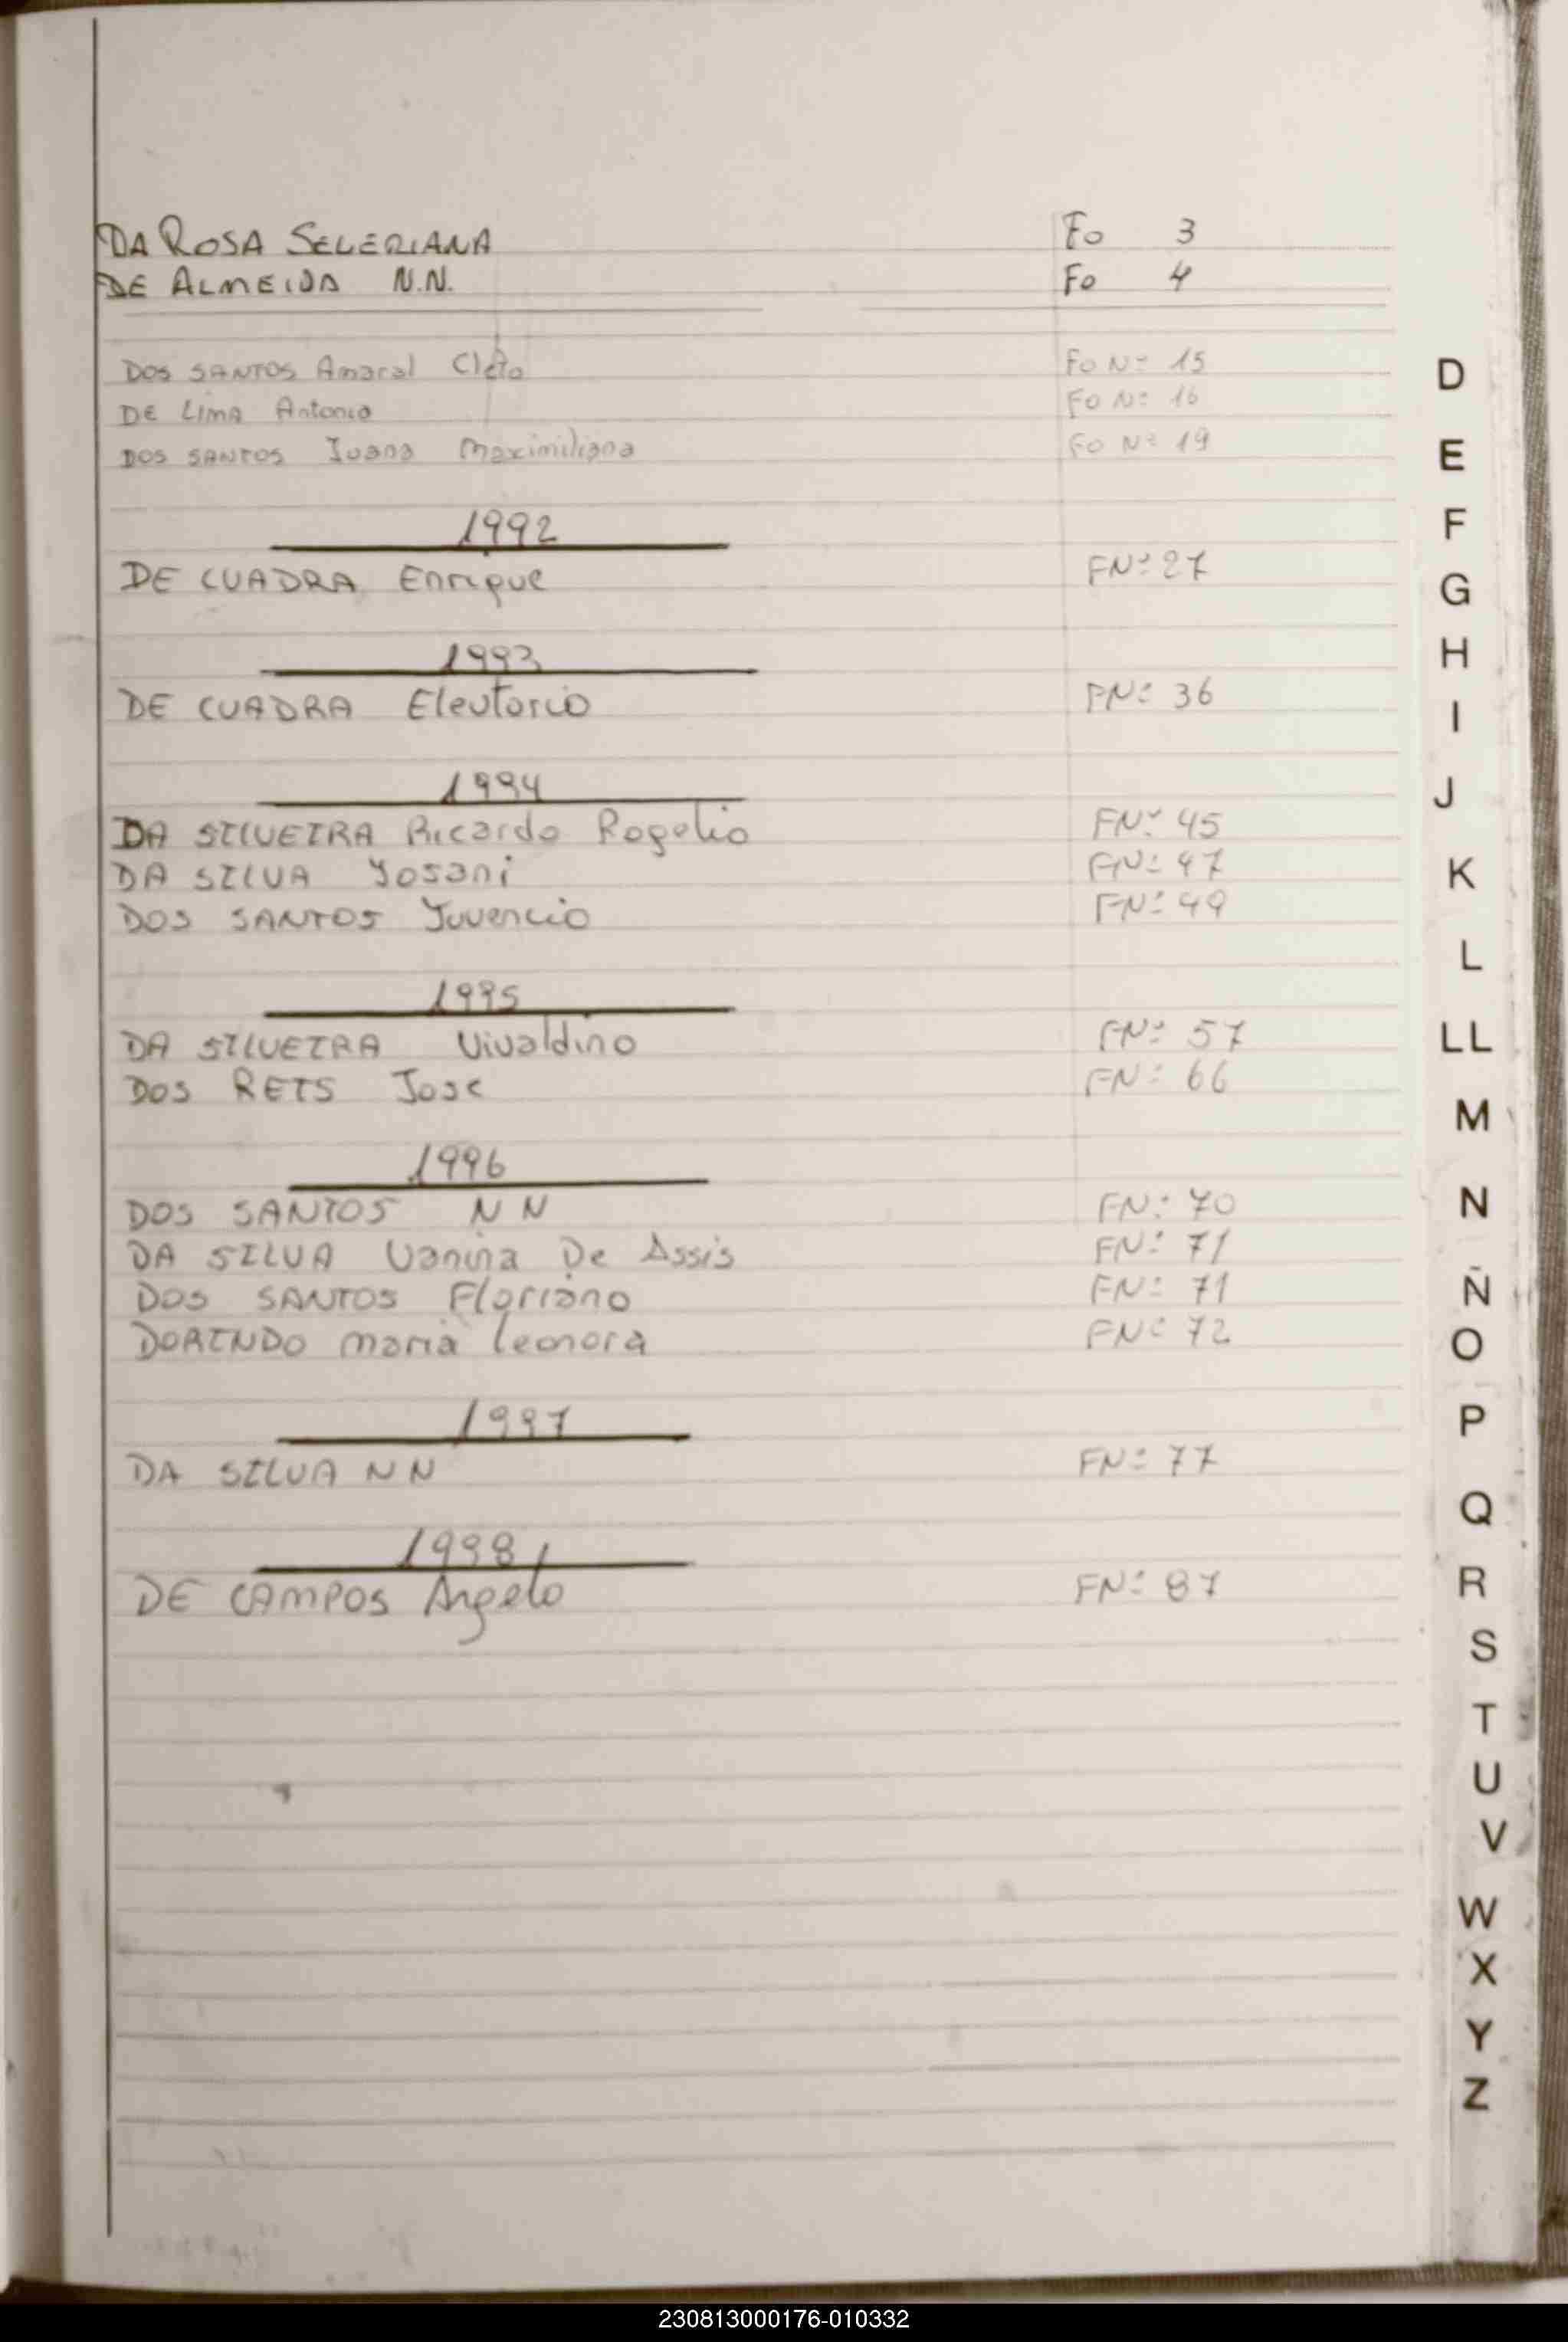 DA ROSA SELERIANA Fo 3
DE ALMEIDA N.N. Fo 4
DOS SANTOS Amaral Cleto Fo Nº 15
DE LIMA Antonio Fo Nº 16
DOS SANTOS Juana Maximiliana Fo Nº 19
1992
DE CUADRA Enrique FNº 27
1993
DE CUADRA Eleutorio FNº 36
1994
DA SILVEIRA Ricardo Rogelio FNº 45
DA SILVA Josani FNº 47
DOS SANTOS Juvencio FNº 49
1995
DA SILVEIRA Vivaldino FNº 57
DOS REIS Jose FNº 66
1996
DOS SANTOS NN FNº 70
DA SILVA Vanina De Assis FNº 71
DOS SANTOS Floriano FNº 71
DORINDO Maria Leonora FNº 72
1997
DA SILVA NN FNº 77
1998
DE CAMPOS Angelo FNº 87
D
E
F
G
H
I
J
K
L
LL
M
N
Ñ
O
P
Q
R
S
T
U
V
W
X
Y
Z
230813000176-010332